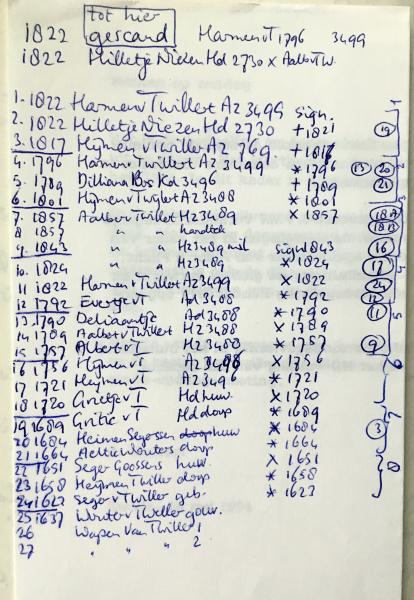 tot hier
1822 gescand Harmen v T 1796 3499
1822 Hilletje Niezen Hd 2730 x Aalb v Tw.
1. 1822 Harmen v Twillert Az 3499 sign.
2. 1822 Hilletje Niezen Hd 2730 + 1821
3. 1817 Hijmen v Twiller Az 769 + 1816
4. 1796 Harmen v Twillert Az 3499 * 1796
5. 1789 Dilliana Bos Kd 3496 + 1789
6. 1801 Hijmen v Twillert Az 3488 * 1801
7. 1857 Aalbert v Twillet Hz 3489 x 1857
8 1857 " " handtek
9. 1843 " " Hz 3489 mil sign 1843
10. 1824 " " Hz 3489 * 1824
11 1822 Harmen v Twillert Az 3499 x 1822
12 1792 Evertje v T Ad 3488 * 1792
13. 1790 Deliaantje Ad 3488 * 1790
14 1789 Aalbert v Twillert Hz 3488 * 1789
15 1757 Albert v T Hz 3488 * 1757
16 1756 Hijmen v T Az 3488 x 1756
17 1721 Heijmen v T Az 3496 * 1721
18 1720 Grietje v T Hd huw x 1720
19 1689 Gritie v T Hd doop * 1689
20 1684 Heimen Segersen doop huw * 1684
21 1664 Aeltie Wouters doop * 1664
22 1651 Seger Goossens huw. x 1651
23 1658 Heijmen Twiller doop * 1658
24 1623 Seger v Twiller geb. * 1623
25 1637 Wouter v Tweller gouv.
26 Wapen Van Twiller 1
27 " " " 2
1
19
2
13 20
21
3
18A
18B
16
4
17
24
12
5
11
9
6
7
3
8